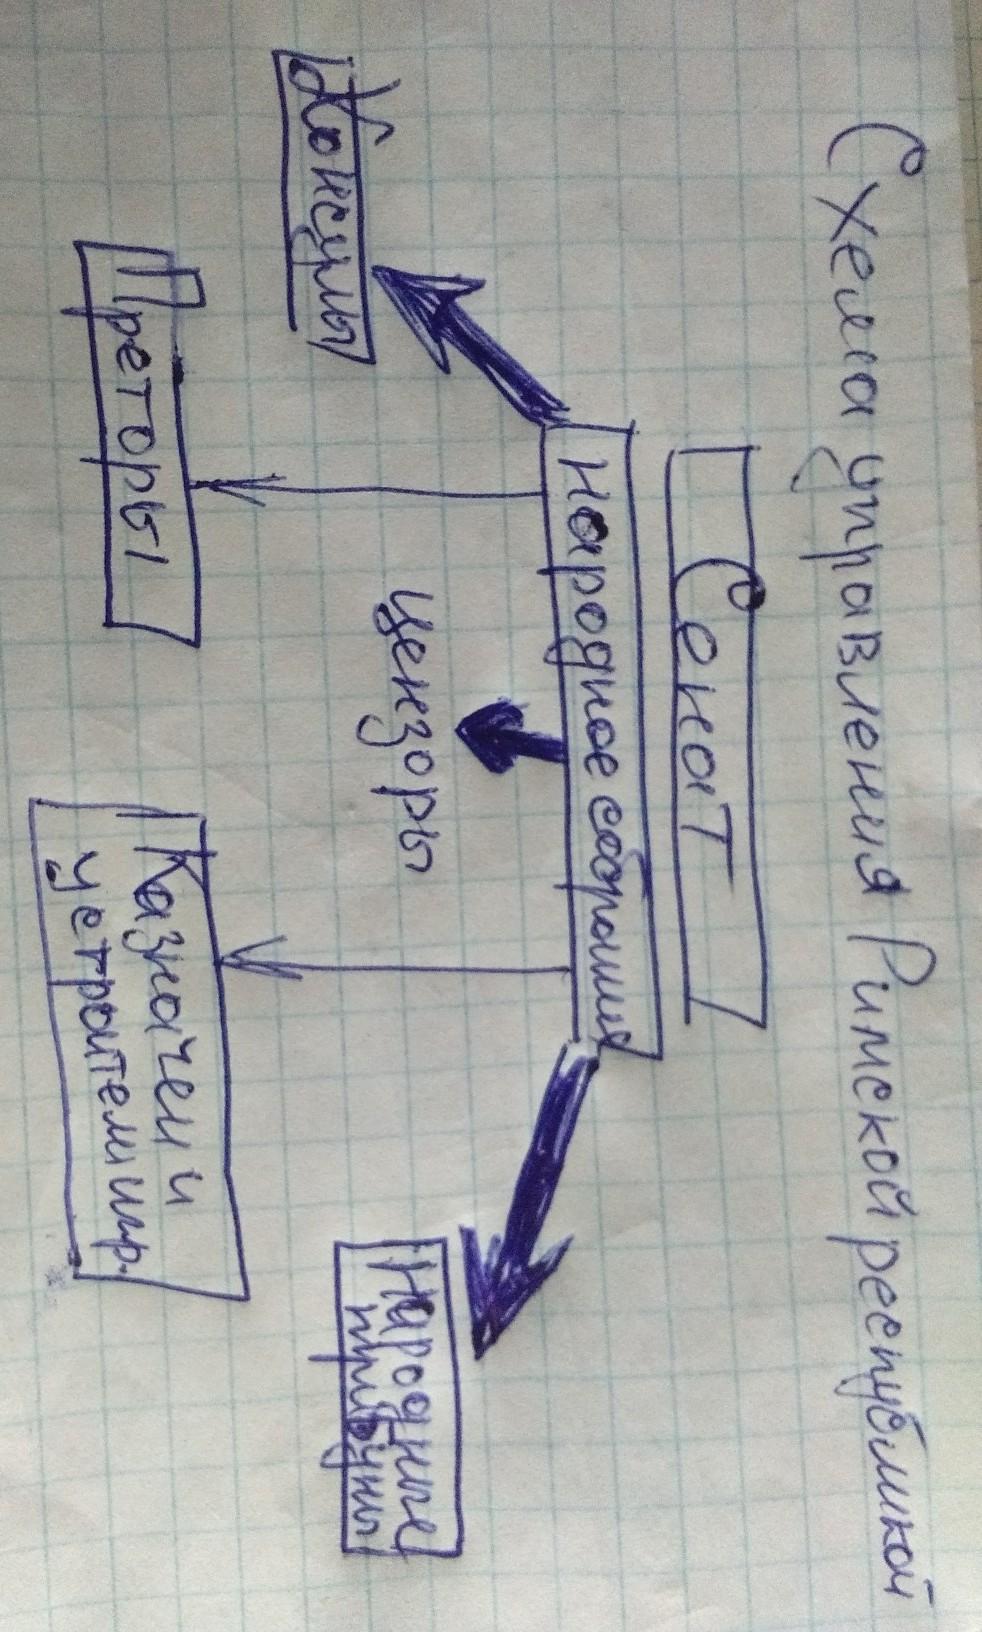 Схема управления Римской республикой
Сенат
Народное собрание
Консулы
Цензоры
Народные
трибуны
Преторы
Казначеи и
устроители игр.